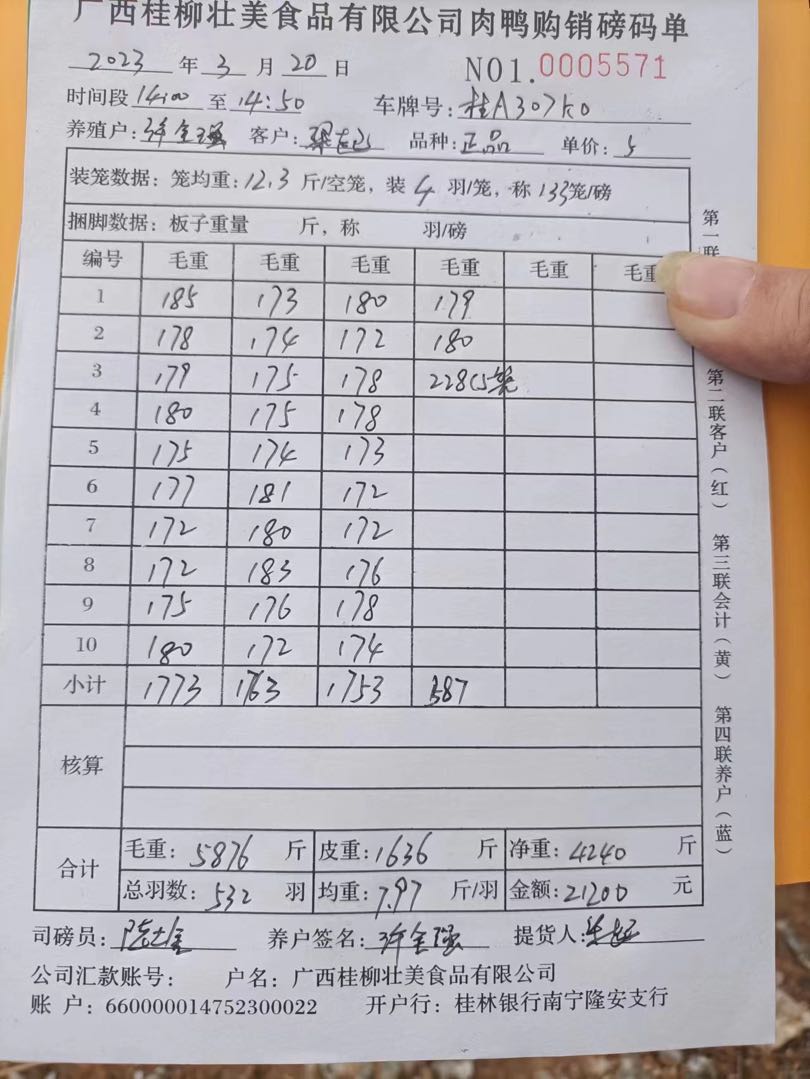 广西桂柳壮美食品有限公司肉鸭购销磅码单
2023 年 3 月 20 日 NO1.0005571
时间段 14:00 至 14:50 车牌号: 桂A307K0
养殖户: 许金强 客户: 品种: 正品 单价: 5
装笼数据: 笼均重: 12.3 斤/空笼, 装 4 羽/笼, 称 133笼/磅
捆脚数据: 板子重量 斤, 称 羽/磅
编号 毛重 毛重 毛重 毛重 毛重 毛重
1 185 173 180 179
2 178 174 172 180
3 179 175 178 228(5笼
4 180 175 178
5 175 174 173
6 177 181 172
7 172 180 172
8 172 183 176
9 175 176 178
10 180 172 174
小计 1773 1763 1753 587
核算
合计
毛重: 5876 斤 皮重: 1636 斤 净重: 4240 斤
总羽数: 532 羽 均重: 7.97 斤/羽 金额: 21200 元
司磅员: 养户签名: 许金强 提货人:
公司汇款账号: 户名: 广西桂柳壮美食品有限公司
账 户: 660000014752300022 开户行: 桂林银行南宁隆安支行
第一联
第二联客户(红)
第三联会计(黄)
第四联养户(蓝)